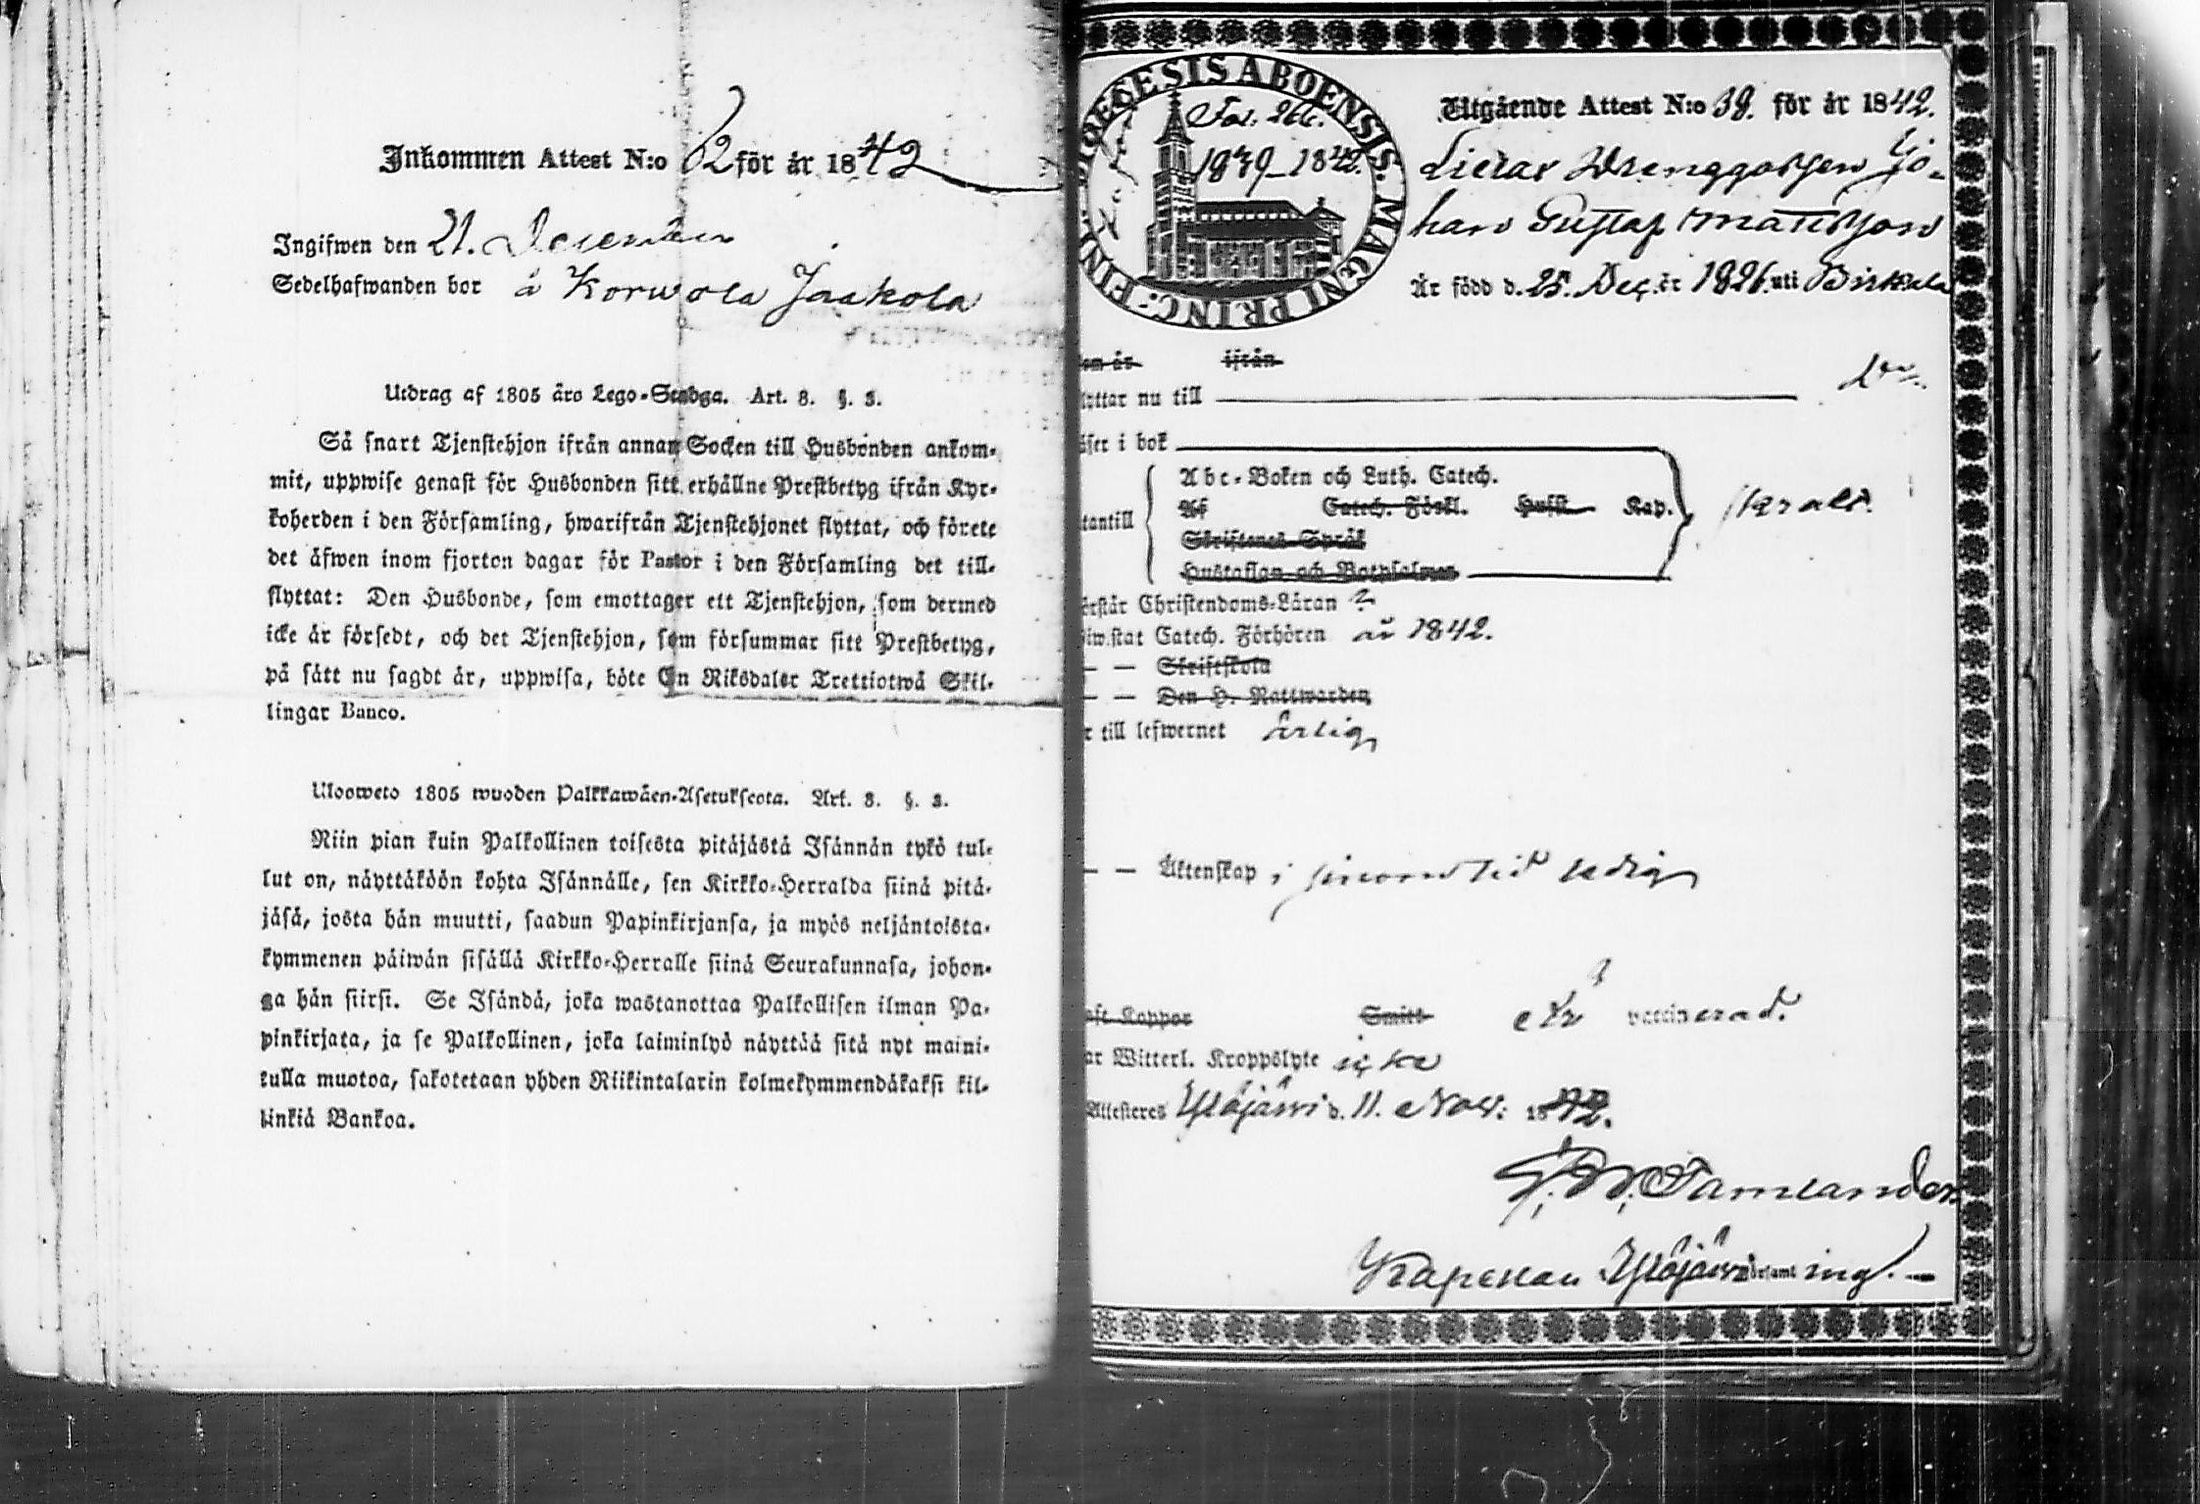 Inkommen Attest N:o 62 för år 1842
Ingifwen den 21. December
Sedelhafwanden bor å Korwola Jaakola
Utdrag af 1805 års Lego-Stadga. Art. 8. §. 3.
Så snart Tjenstehjon ifrån annan Socken till Husbonden ankom-
mit, uppwise genast för Husbonden sitt erhållne Prestbetyg ifrån Kyr-
koherden i den Församling, hwarifrån Tjenstehjonet flyttat, och förete
det äfwen inom fjorton dagar för Pastor i den Församling det till-
flyttat: Den Husbonde, som emottager ett Tjenstehjon, som dermed
icke är försedt, och det Tjenstehjon, som försummar sitt Prestbetyg,
på sätt nu sagdt är, uppwisa, böte En Riksdaler Trettiotwå Skil-
lingar Banco.
Ulosweto 1805 wuoden Palkkawäen-Asetuksesta. Art. 8. §. 3.
Niin pian kuin Palkollinen toisesta pitäjästä Isännän tykö tul-
lut on, näyttäköön kohta Isännälle, sen Kirkko-Herralda siinä pitä-
jäsä, josta hän muutti, saadun Papinkirjansa, ja myös neljäntoista-
kymmenen päiwän sisällä Kirkko-Herralle siinä Seurakunnasa, johon-
ga hän siirsi. Se Isändä, joka wastanottaa Palkollisen ilman Pa-
pinkirjata, ja se Palkollinen, joka laiminlyö näyttää sitä nyt maini-
tulla muotoa, sakotetaan yhden Riikintalarin kolmekymmendäkaksi kil-
linkiä Bankoa.
DIOECESIS ABOENSIS. MAGNI PRINC. FINL.
Fol. 266.
1839–1842.
Utgående Attest N:o 39. för år 1842.
Drenggossen Jo-
han Gustaf Mattsson
Är född d. 25. Dec. år 1826. uti Birkala
om år ifrån
lyttar nu till
äser i bok
Abc-Boken och Luth. Catech.
Af Catech. Förkl. Husst. Kap.
tantill
Skriftenes Språk
Hustaflan och Botpsalmer
örstår Christendoms-Läran
iwistat Catech. Förhören år 1842.
— — Skriftskola
— — Den H. Nattwarden
r till lefwernet ärlig
— — Äktenskap i sinom tid ledig
aft Koppor Smitt Är vaccinerad.
ar Witterl. Kroppslyte icke
Attesteres Ylöjärwi d. 11. Nov. 1842.
Kapellan Ylöjärwi församling. —